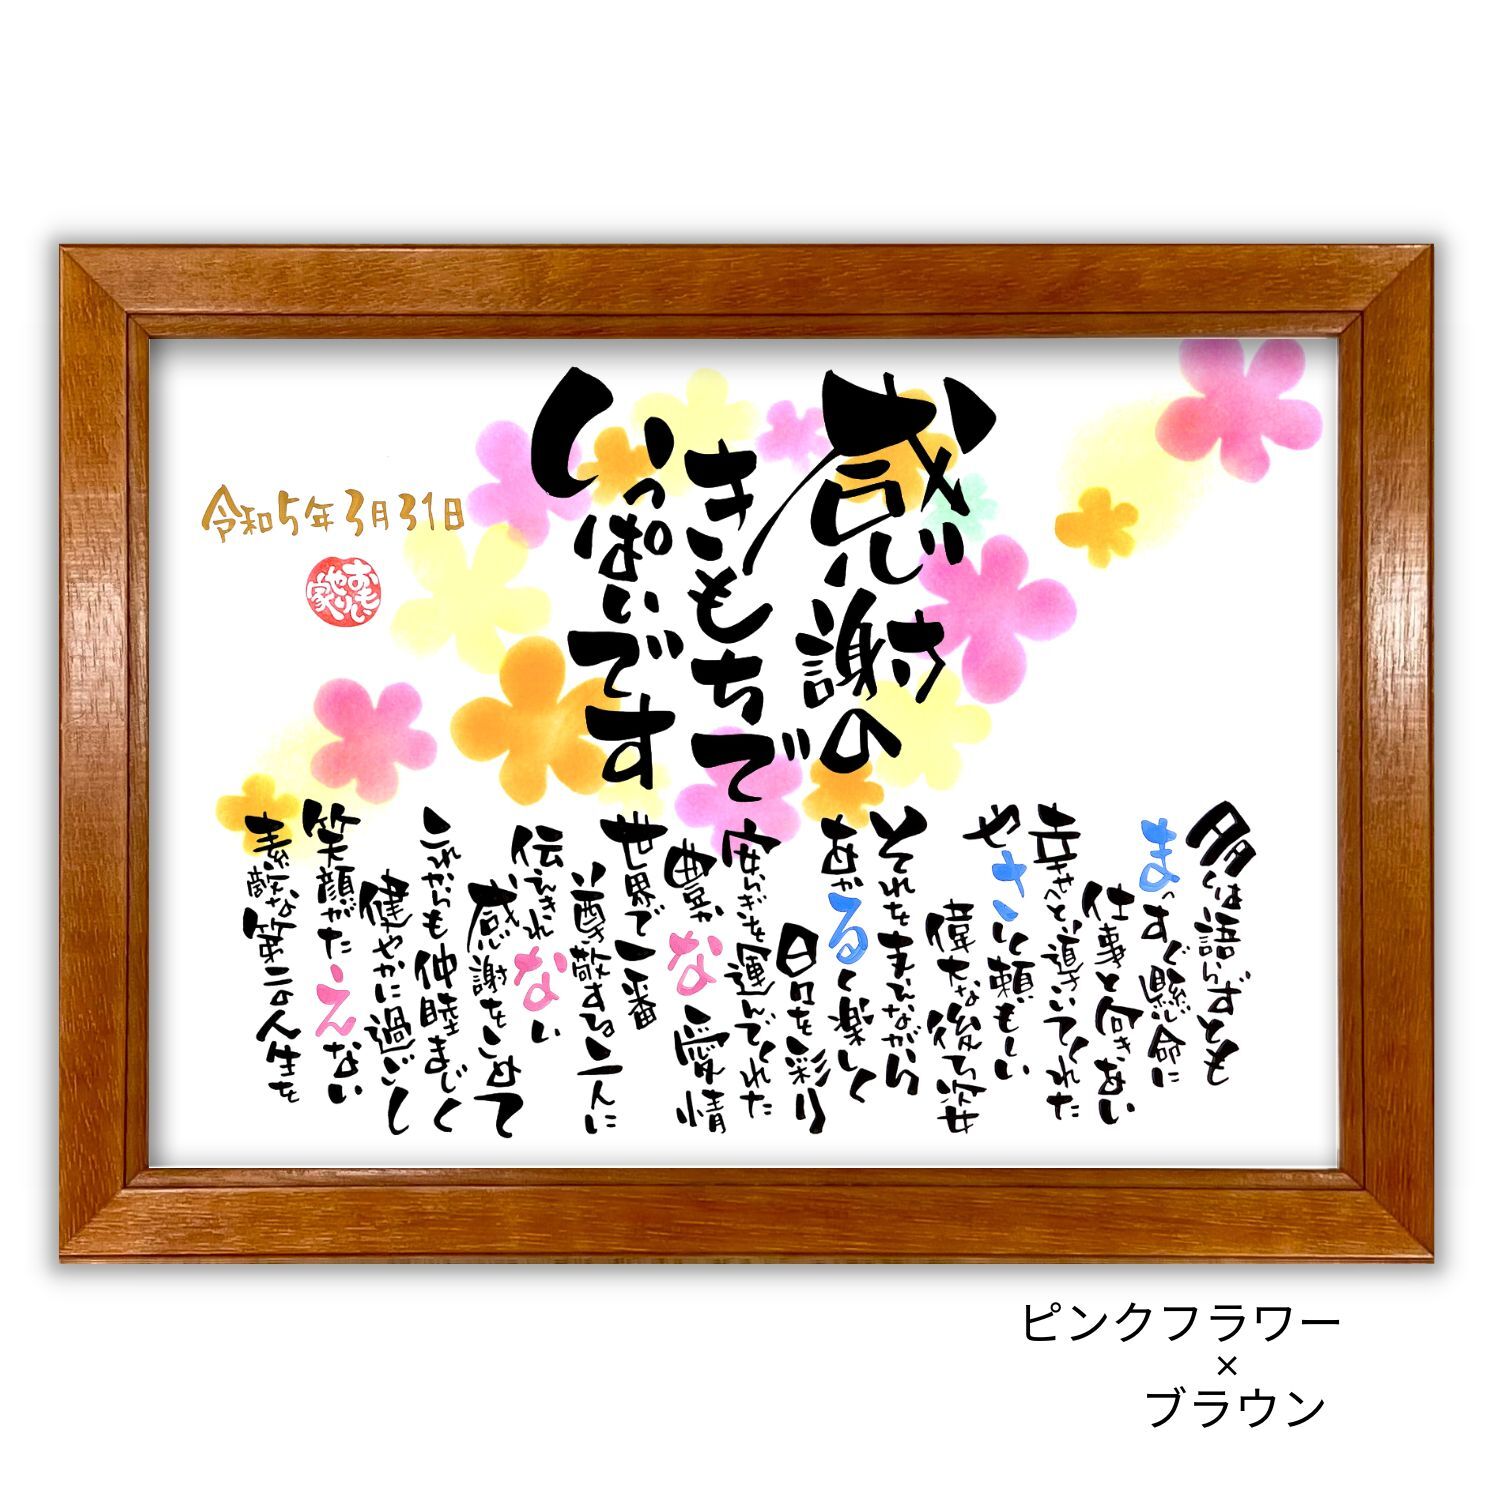 感謝の
きもちで
いっぱいです
多くは語らずとも
まっすぐ懸命に
仕事と向きあい
幸せへと導いてくれた
やさしく頼もしい
偉大な後ろ姿
それをまといながら
あかるく楽しく
日々を彩り
安らぎを運んでくれた
豊かな愛情
世界で一番
尊敬する二人に
伝えきれない
感謝をこめて
これからも仲睦まじく
健やかに過ごし
笑顔がたえない
素敵な第二の人生を
令和5年3月31日
おもいやり家
ピンクフラワー
×
ブラウン